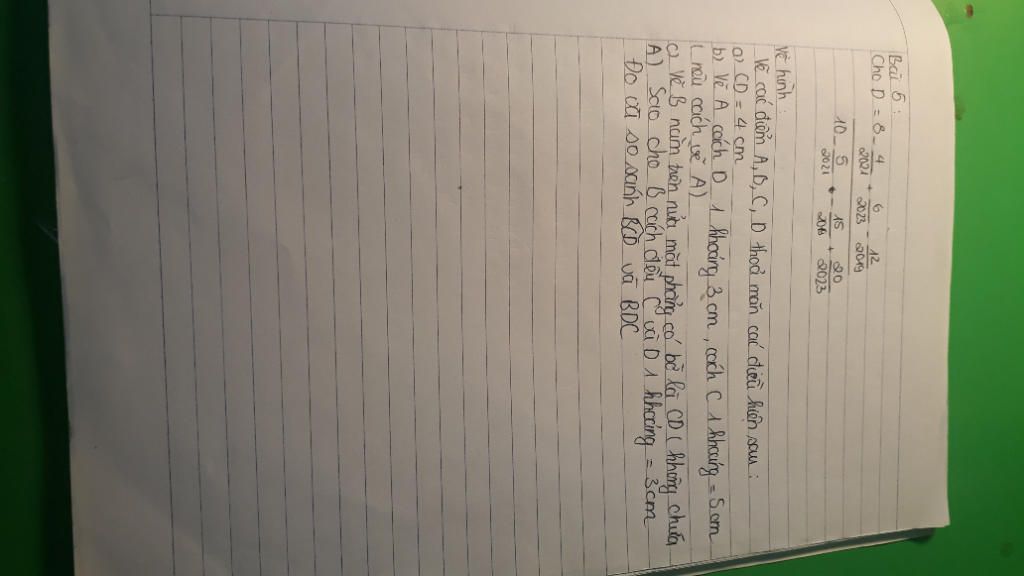 Bài 5:
Cho D = 8 - 4/2021 + 6/2023 - 12/2019
10 - 5/2021 + - 15/2016 + 20/2023
Vẽ hình:
Vẽ các điểm A, B, C, D thoả mãn các điều kiện sau:
a) CD = 4 cm
b) Vẽ A cách D 1 khoảng 3 cm, cách C 1 khoảng = 5 cm
(nêu cách vẽ A)
c) Vẽ B nằm trên nửa mặt phẳng có bờ là CD (không chứa
A) Sao cho B cách đều C và D 1 khoảng = 3cm
Đo và so sánh BCD và BDC